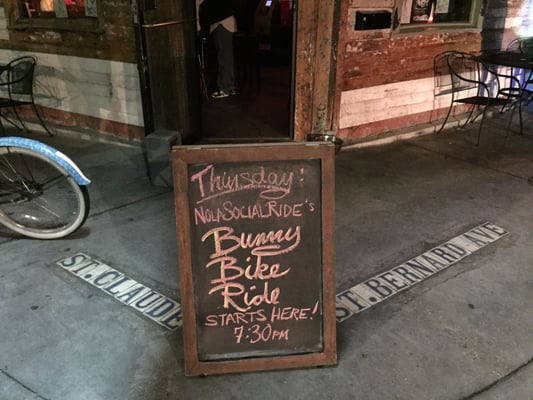 Thursday:
NOLASOCIALRIDE'S
Bunny
Bike
Ride
STARTS HERE!
7:30PM
ST. CLAUDE
ST. BERNARD AVE.